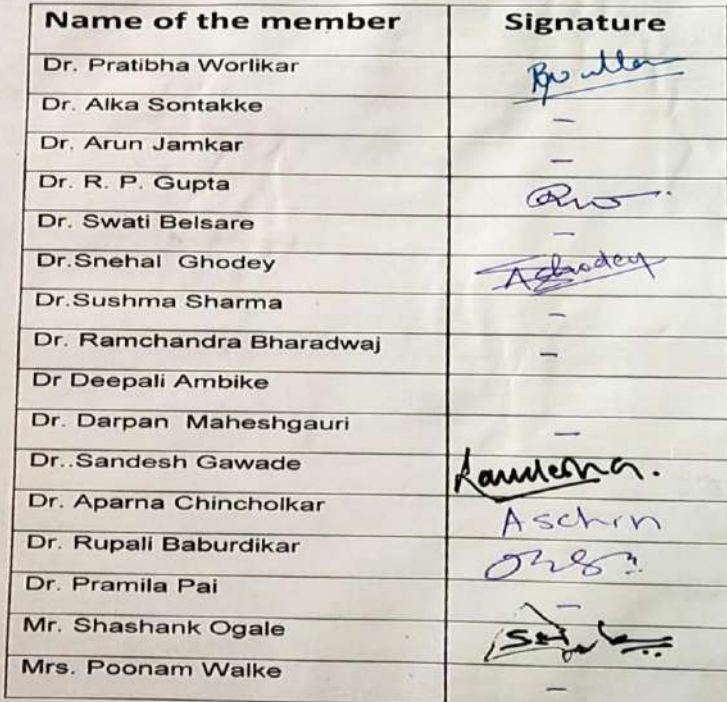 Name of the member Signature
Dr. Pratibha Worlikar
Dr. Alka Sontakke –
Dr. Arun Jamkar –
Dr. R. P. Gupta
Dr. Swati Belsare –
Dr.Snehal Ghodey
Dr.Sushma Sharma –
Dr. Ramchandra Bharadwaj –
Dr Deepali Ambike
Dr. Darpan Maheshgauri –
Dr..Sandesh Gawade
Dr. Aparna Chincholkar
Dr. Rupali Baburdikar
Dr. Pramila Pai –
Mr. Shashank Ogale
Mrs. Poonam Walke –